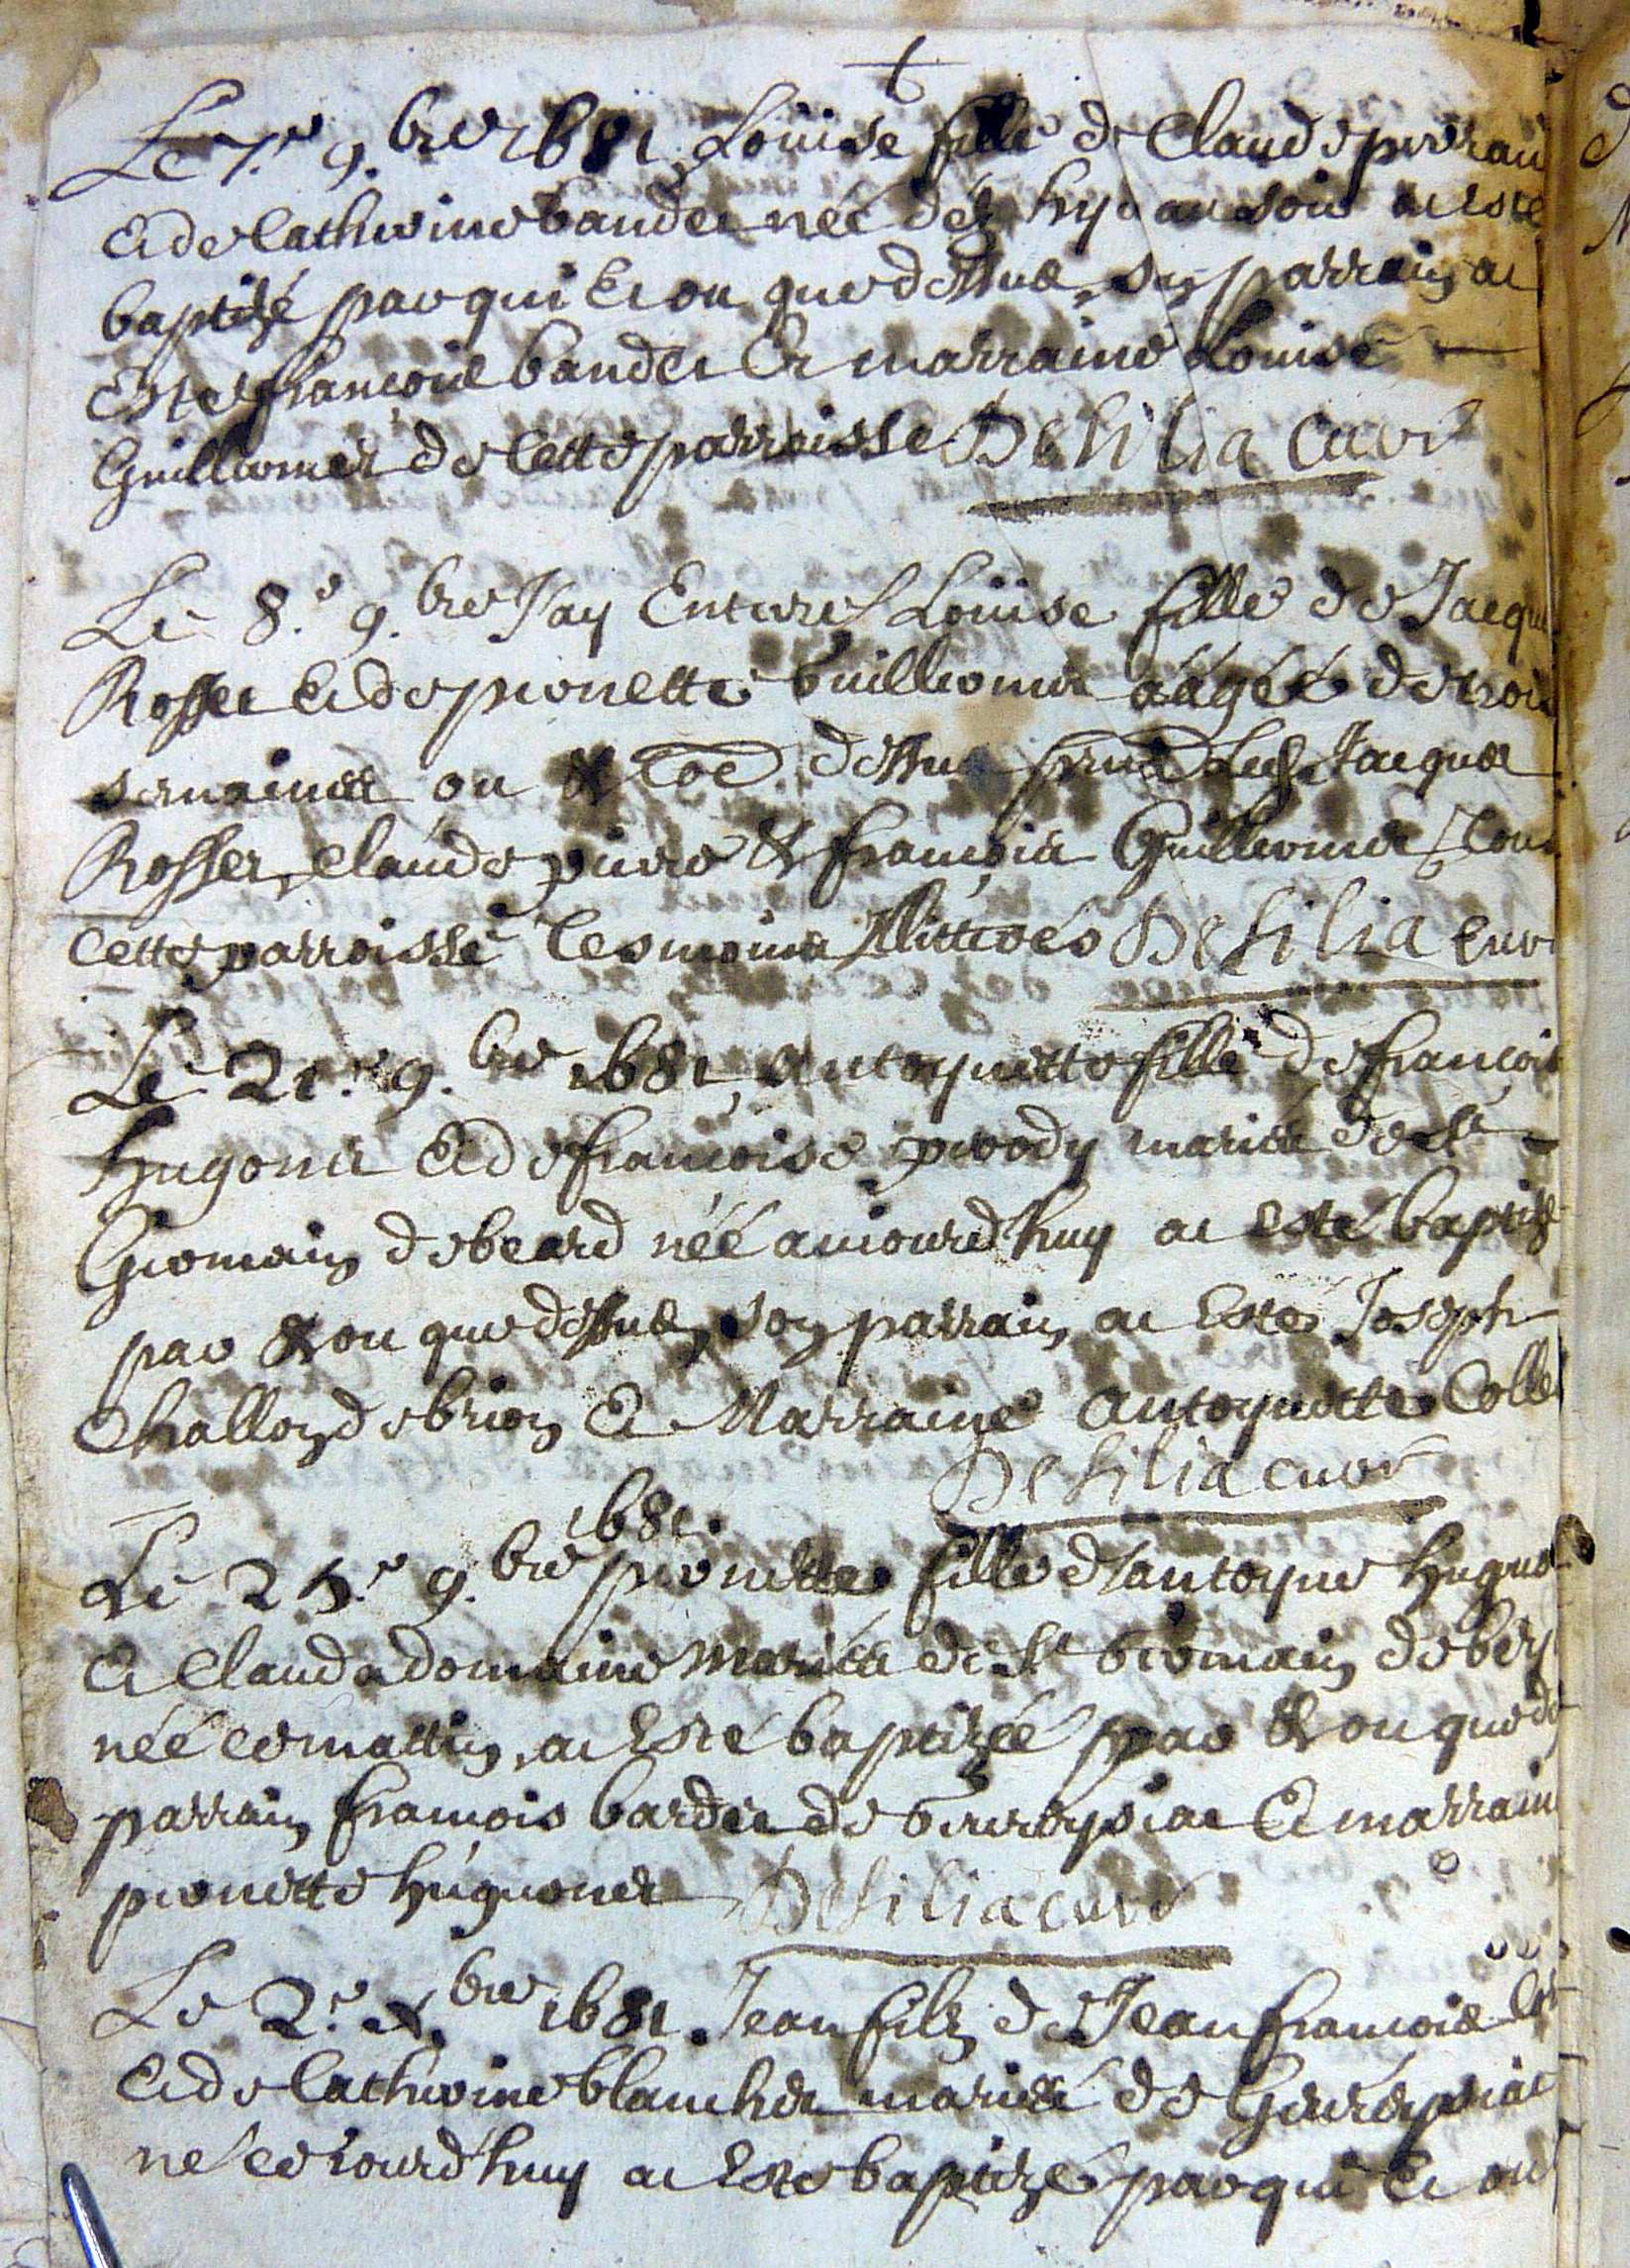 Le 7.e 9.bre 1681 Louise fille de Claude
Et de Catherine bandet née dez hyer au soir at esté
baptizé par qui et ou que dessus, son parrain at
Esté françois bandet Et marraine Louise
Guillermet de Cette parroisse De Filia curé
Le 8.e 9.bre J'ay Enterré Louise fille de Jacque
Rosset Et de pernette Guillermet aagée de trois
semaines ou & dessus Jacques
Rosset, Claude & françois Guillermet
Cette parroisse tesmoins illitterés De Filia curé
Le 21.e 9.bre 1681, antoynette fille de françois
Hugonet Et de françoise perody mariés de St
Germain de beard née aujourd'huy at esté baptizé
par & ou que dessus, son parrain at Esté Joseph
Challon de brion Et Marraine antoynette Collet
De Filia curé
1681.
Le 25.e 9.bre pernette fille d'antoyne
Et Clauda domaine mariés de St Germain de
née ce mattin, at Esté baptizée par & ou que
parrain françois bardet de Geureyssiat Et marraine
pernette huguonet De Filia curé
Le 2.e x.bre 1681. Jean filz de Jean françois
Et de Catherine blanchet mariés de Geureyssiat
né ce iourd'huy at Esté baptizé par qui Et ou